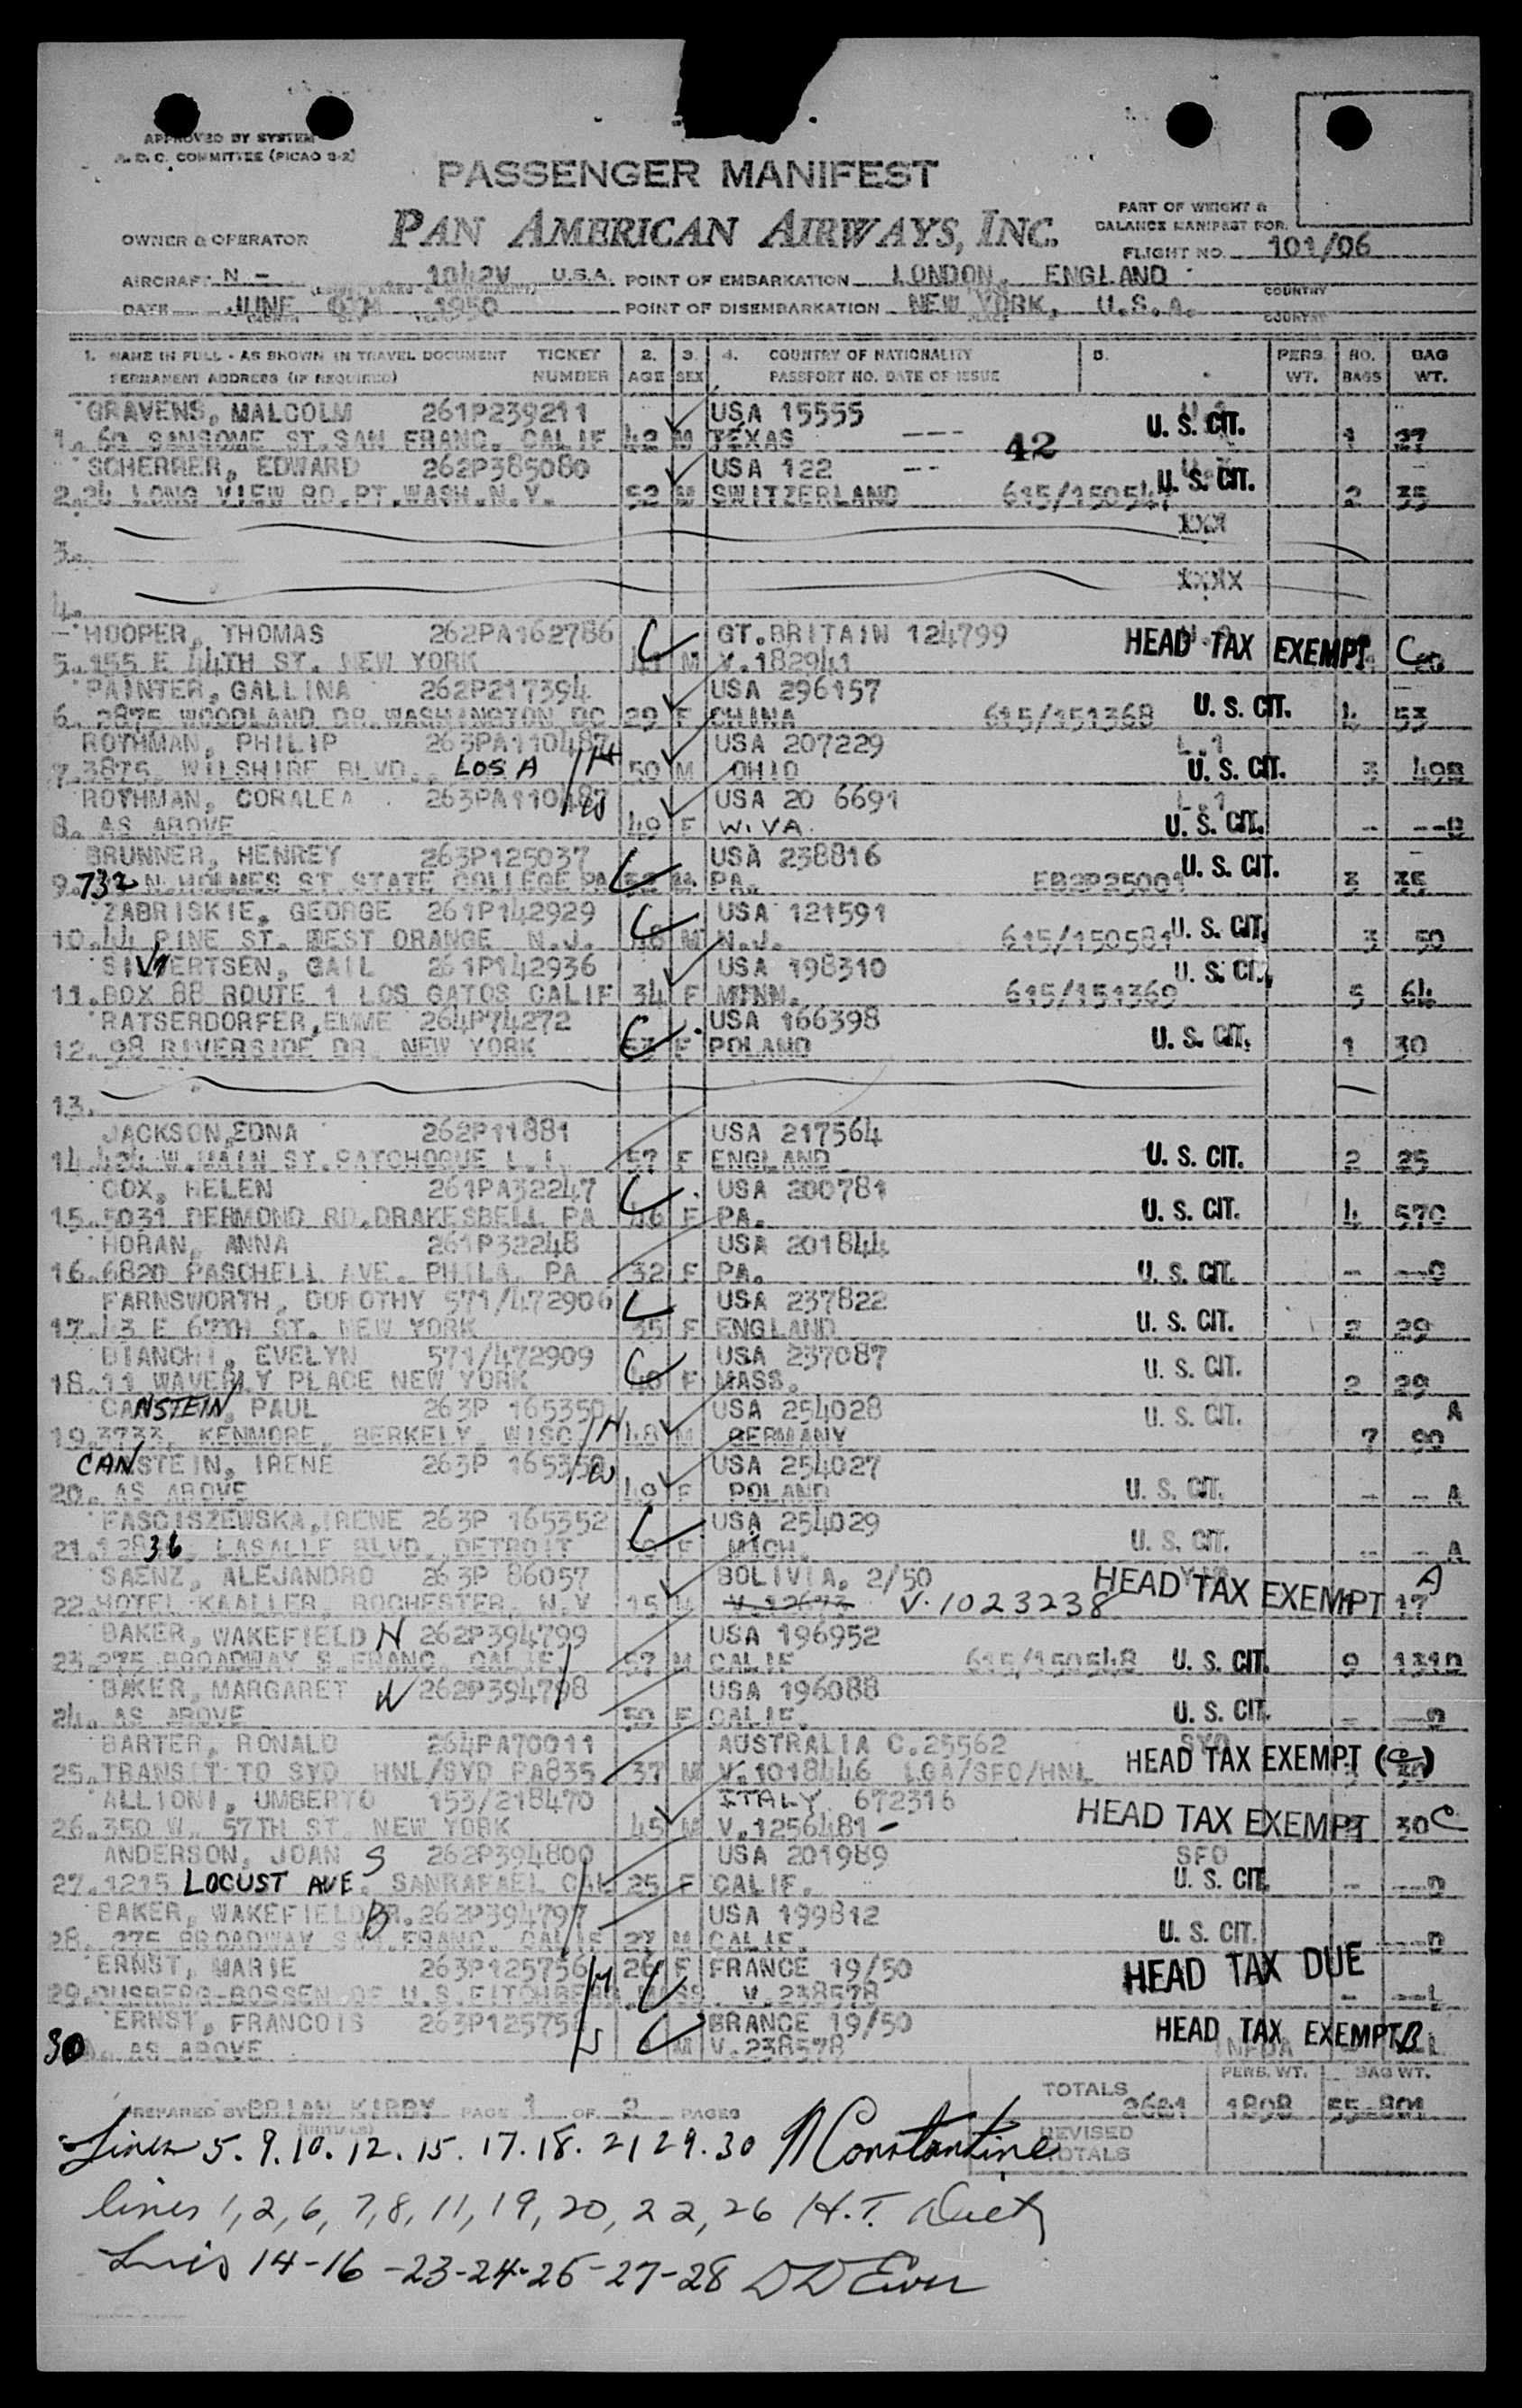 APPROVED BY SYSTEM
A. D. C. COMMITTEE (PICAO 3-2)
PASSENGER MANIFEST
PAN AMERICAN AIRWAYS, INC.
PART OF WEIGHT &
BALANCE MANIFEST FOR
OWNER & OPERATOR
FLIGHT NO. 101/06
AIRCRAFT N - 1042V U.S.A. POINT OF EMBARKATION LONDON, ENGLAND
COUNTRY
DATE JUNE 1950 POINT OF DISEMBARKATION NEW YORK, U.S.A.
PLACE COUNTRY
1. NAME IN FULL - AS SHOWN IN TRAVEL DOCUMENT TICKET 2. 3. 4. COUNTRY OF NATIONALITY 5. PERS. NO. BAG
PERMANENT ADDRESS (IF REQUIRED) NUMBER AGE SEX PASSPORT NO. DATE OF ISSUE WT. BAGS WT.
GRAVENS, MALCOLM 261P239211 USA 15555
1. 60 SANSOME ST. SAN FRANC. CALIF 42 M TEXAS --- 42 U. S. CIT. 1 27
SCHERRER, EDWARD 262P385080 USA 122 --
2. 24 LONG VIEW RD. PT. WASH. N.Y. 52 M SWITZERLAND 615/150547 U. S. CIT. 2 35
XXX
3.
XXXX
4.
HOOPER, THOMAS 262PA162786 C GT. BRITAIN 124799
5. 155 E 44TH ST. NEW YORK M V. 182941 HEAD TAX EXEMPT C
PAINTER, GALLINA 262P217394 USA 296157
6. 2875 WOODLAND DR. WASHINGTON DC 29 F CHINA 615/151368 U. S. CIT. 4 53
ROTHMAN, PHILIP 263PA110487 H USA 207229 L.1
7. 3875 WILSHIRE BLVD. LOS A 50 M OHIO U. S. CIT. 3 49B
ROTHMAN, CORALEA 263PA110487 W USA 20 6691 L.1
8. AS ABOVE 49 F W. VA. U. S. CIT. - --B
BRUNNER, HENREY 263P125037 C USA 238816
9. 732 N. HOLMES ST. STATE COLLEGE PA 52 M PA. EB2P25001 U. S. CIT. 3 35
ZABRISKIE, GEORGE 261P142929 C USA 121591
10. 44 PINE ST. WEST ORANGE N.J. 48 M N.J. 615/150581 U. S. CIT. 3 50
SIVERTSEN, GAIL 261P142936 USA 198310
11. BOX 88 ROUTE 1 LOS GATOS CALIF 34 F MINN. 615/151369 U. S. CIT. 5 64
RATSERDORFER, EMME 264P74272 C USA 166398
12. 98 RIVERSIDE DR. NEW YORK 53 F POLAND U. S. CIT. 1 30
13.
JACKSON, EDNA 262P11881 USA 217564
14. 424 W. MAIN ST. PATCHOGUE L.I. 57 F ENGLAND U. S. CIT. 2 25
COX, HELEN 261PA32247 C USA 200781
15. 5031 DERMOND RD. DRAKESBELL PA 46 F PA. U. S. CIT. 4 57C
HORAN, ANNA 261P32248 USA 201844
16. 6820 PASCHELL AVE. PHILA. PA 32 F PA. U. S. CIT. - --C
FARNSWORTH, DOROTHY 571/472906 C USA 237822
17. 43 E 67TH ST. NEW YORK 35 F ENGLAND U. S. CIT. 2 29
BIANCHI, EVELYN 571/472909 C USA 237087
18. 11 WAVERLY PLACE NEW YORK 48 F MASS. U. S. CIT. 2 29
CANSTEIN, PAUL 263P 165350 H USA 254028 A
19. 3733, KENMORE, BERKELY, WISC 48 M GERMANY U. S. CIT. 7 90
CANSTEIN, IRENE 263P 165350 W USA 254027
20. AS ABOVE 49 F POLAND U. S. CIT. - - A
FASCISZEWSKA, IRENE 263P 165352 C USA 254029
21. 12836 LASALLE BLVD., DETROIT F MICH. U. S. CIT. - - A
SAENZ, ALEJANDRO 263P 86057 BOLIVIA. 2/50 A
22. HOTEL KAALLER, ROCHESTER, N.Y 15 M V.12673 V. 1023238 HEAD TAX EXEMPT 17
BAKER, WAKEFIELD H 262P394799 USA 196952
23. 275 BROADWAY S. FRANC. CALIF 57 M CALIF 615/150548 U. S. CIT. 9 131D
BAKER, MARGARET W 262P394798 USA 196088
24. AS ABOVE 50 F CALIF. U. S. CIT. - --D
BARTER, RONALD 264PA70011 AUSTRALIA C.25562 SYD
25. TRANSIT TO SYD HNL/SYD PA835 37 M V.1018446 LGA/SFO/HNL HEAD TAX EXEMPT
ALLIONI, UMBERTO 153/218470 ITALY 672316
26. 350 W. 57TH ST. NEW YORK 45 M V.1256481 HEAD TAX EXEMPT 30C
ANDERSON, JOAN S 262P394800 USA 201989 SFO
27. 1215 LOCUST AVE. SANRAFAEL CAL 25 F CALIF. U. S. CIT. - --D
BAKER, WAKEFIELD JR. 262P394797 USA 199812
28. 275 BROADWAY SAN. FRANC. CALIF 27 M CALIF. U. S. CIT. --D
ERNST, MARIE 263P125756 M 26 F C FRANCE 19/50 HEAD TAX DUE
29. MASS. V.238578 - --L
ERNST, FRANCOIS S C BRANCE 19/50
30 AS ABOVE M V.238578 HEAD TAX EXEMPT
PREPARED BY BRIAN KIRBY PAGE 1 OF 2 PAGES
TOTALS 2681 PERS. WT. 1898 BAG WT. 55-801
REVISED TOTALS
Lines 5. 9. 10. 12. 15. 17. 18. 21 29. 30 N Constantine
lines 1, 2, 6, 7, 8, 11, 19, 20, 22, 26 H.T.
14-16-23-24-25-27-28